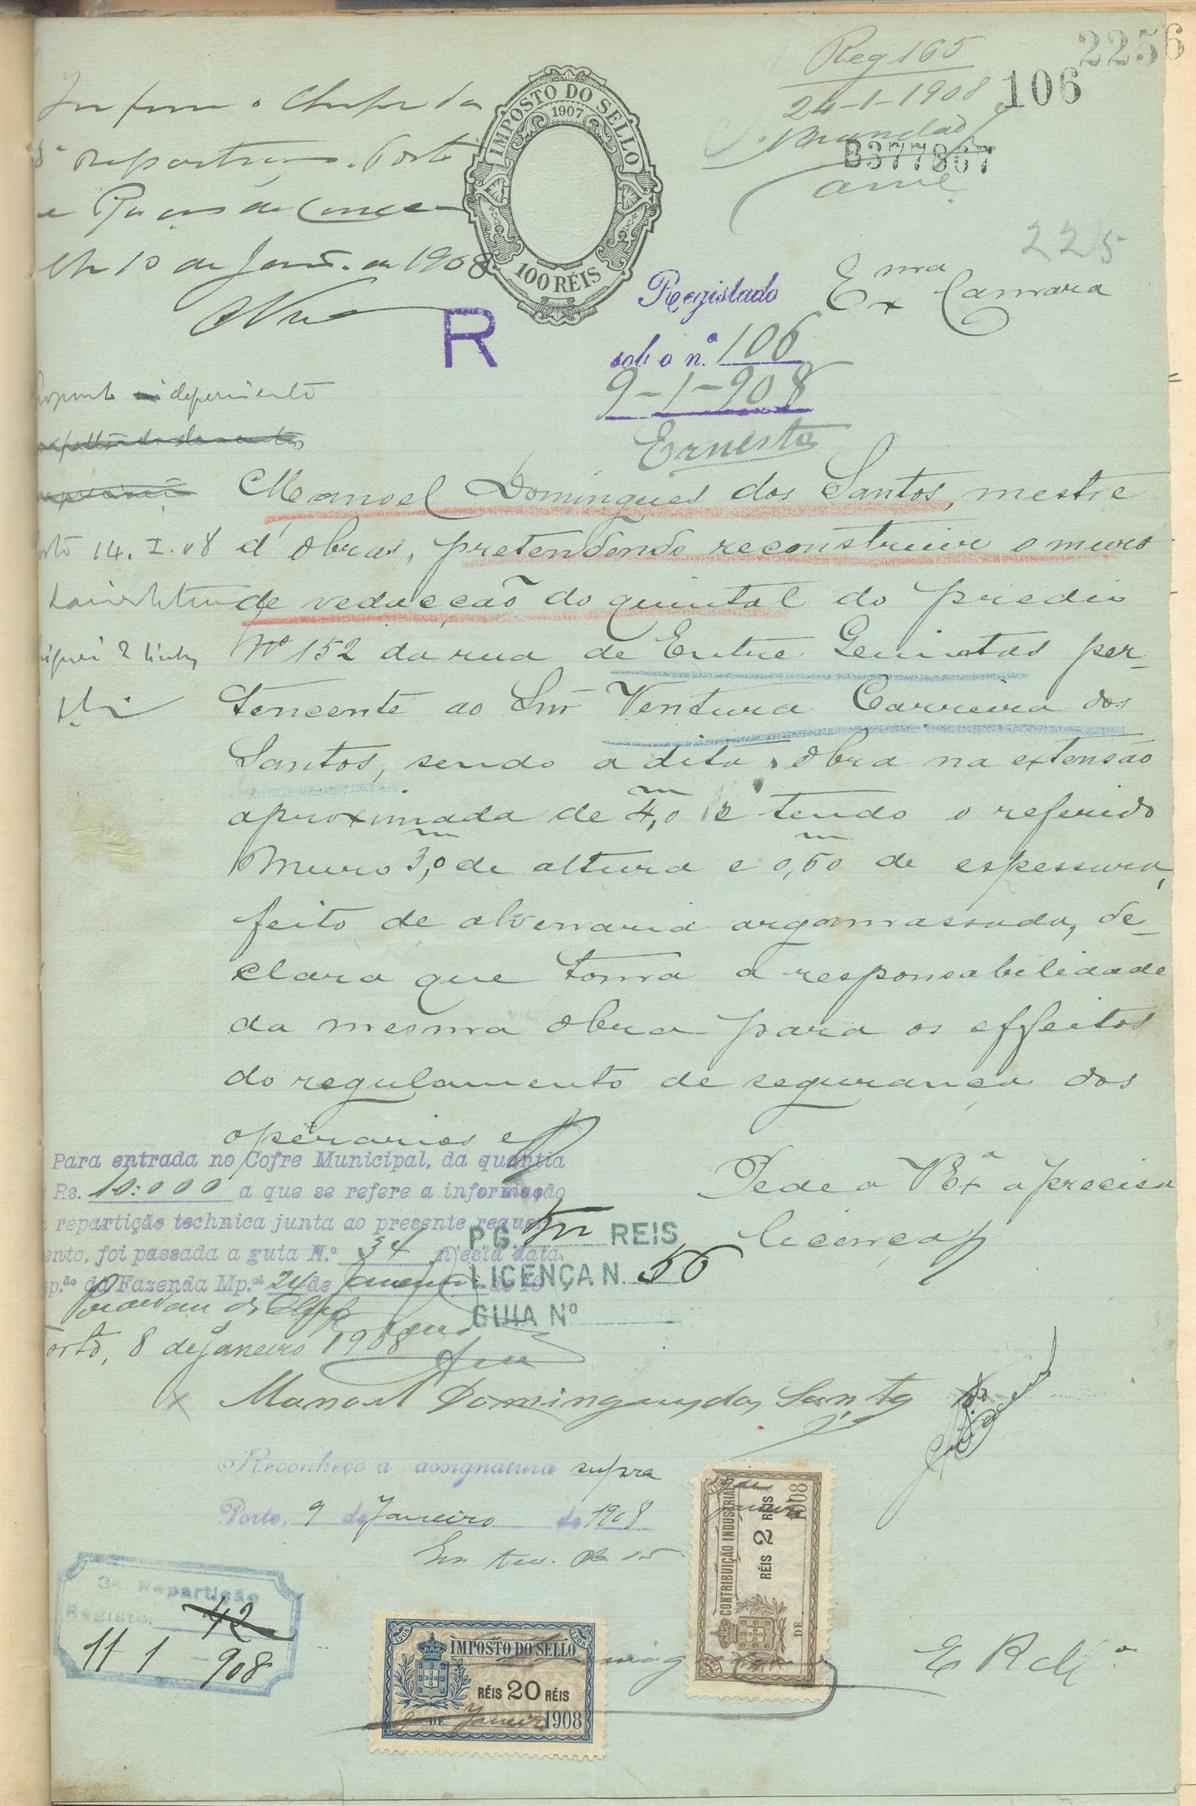 2256
106
Reg 165
24-1-1908
B377867
225
IMPOSTO DO SELLO
1907
100 RÉIS
Informe o Chefe da
3ª repartição. Porto
e Paços do Concelho
10 de Jan.º de 1908
R
Registado
sob o n.º 106
9-1-908
Ernesto
Exma Camara
deferimento
14. I. 08
Manoel Domingues dos Santos, mestre
d'obras, pretendendo reconstruir o muro
de vedacção do quintal do predio
Nº 152 da rua de Entre Quintas per-
tencente ao Snr Ventura Carreira dos
Santos, sendo a dita obra na extensão
aproximada de 4,0 e tendo o referido
Muro 3,0 de altura e 0,60 de espessura,
feito de alvenaria argamassada, de-
clara que toma a responsabilidade
da mesma obra para os effeitos
do regulamento de segurança dos
operarios e
Pede a V Exª a precisa
licença
Para entrada no Cofre Municipal, da quantia
Rs. 10:000 a que se refere a informação
repartição technica junta ao presente reque-
ento, foi passada a guia N.º 34 n'esta data.
da Fazenda Mp.al 24 de Janeiro de 19
PG. REIS
LICENÇA N. 56
GUIA Nº
orto, 8 de Janeiro 1908
Manoel Domingues dos Santos
Reconheço a assignatura supra
Porto, 9 de Janeiro de 1908
3ª Repartição
Registo 42
11 1 908
IMPOSTO DO SELLO
RÉIS 20 RÉIS
DE 1908
CONTRIBUIÇÃO INDUSTRIAL
RÉIS 2 RÉIS
DE 1908